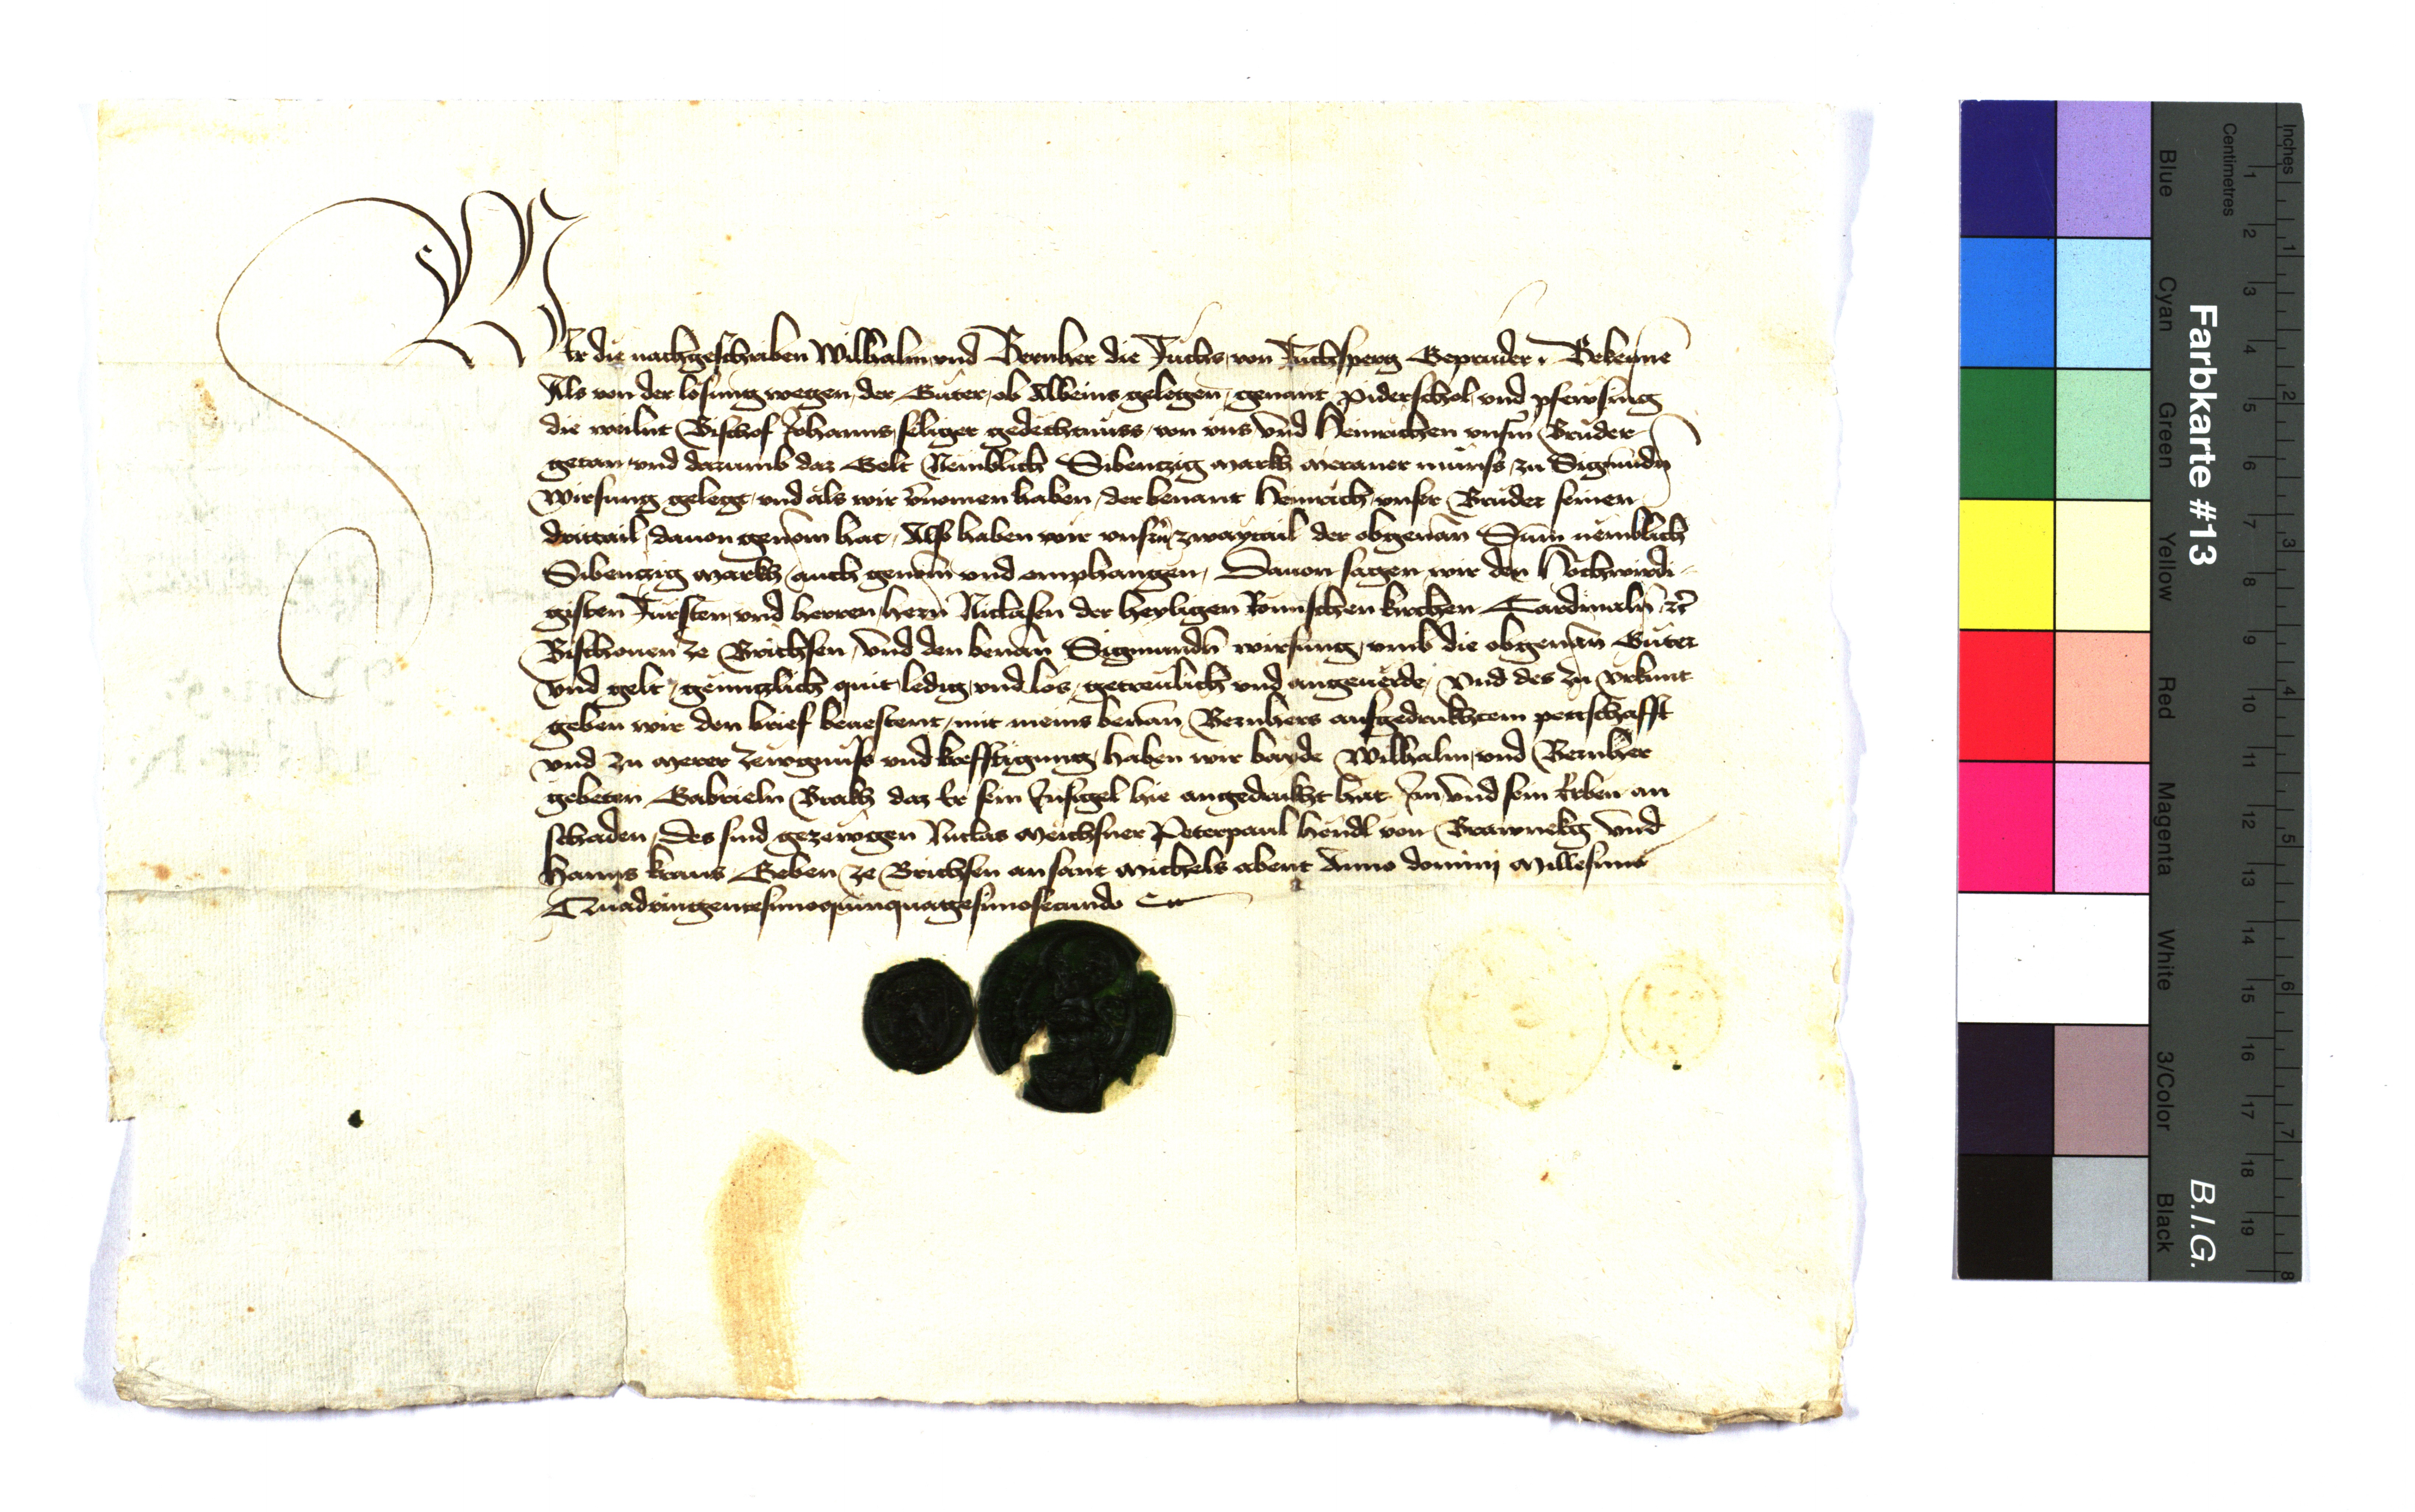 Wir die nachgeschriben Wilhalm und Bernher die Fuchs von Fuchsperg Geprúder Bekenne
Als von der losung wegen der Gúter ob Albeins gelegen genant piderschol und pfewsing
die weilnt Bischof Johanns seliger gedechtnúss von uns und Heinrichen unsm̄ Brúder
getan und darumb daz Gelt Nemblich Sibentzig markh meraner múnss zu Sigmundn̄
Wirsung gelegt und als wir v̄nomen haben der benant Heinrich unser Brúder seinen
drittail dauon genom̄ hat Also haben wir unsrn̄ zwaytail der obgenan̄ Sum̄ nemblich
Sibentzig markh auch genom̄ und emphangen Dauon sagen wir den Hochwirdi-
gisten Fúrsten und herren hern̄ Niclasen der heyligen Rómischen kirchen Cardinaln̄ zc̄
Bischouen ze Brichsen und den benan̄ Sigmundn̄ wirsung umb die obgenan̄ Gúter
und gelt genntzlich quit ledig und los getreúlich und angeuërde und des zu urkunt
geben wir den brief beuestent mit meins benan̄ Bernhers aufgedrukhtem pettschafft
und zu merer zewgnúss und krefftigung haben wir bayde Wilhalm und Bernher
gebeten Gabrieln Prakh daz Er sein Insigel hie angedrukht hat Im und sein Erben an
schaden Des sind gezewgen Niclas meichsner Peterpaul Hëndl von Brawnekg und
Hanns krans Geben ze Brichsen an sant michels abent Anno domini millesimo
Quadringentesimoquinquagesimosecundo
Farbkarte #13
B.I.G.
Inches
Centimetres
1 2 3 4 5 6 7 8 9 10 11 12 13 14 15 16 17 18 19
1 2 3 4 5 6 7 8
Blue
Cyan
Green
Yellow
Red
Magenta
White
3/Color
Black